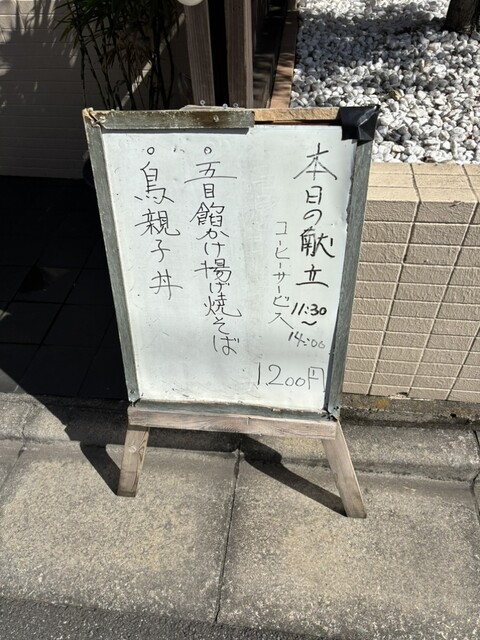 本日の献立
11:30
〜
14:00
コーヒーサービス
1200円
○五目餡かけ揚げ焼そば
○鳥親子丼